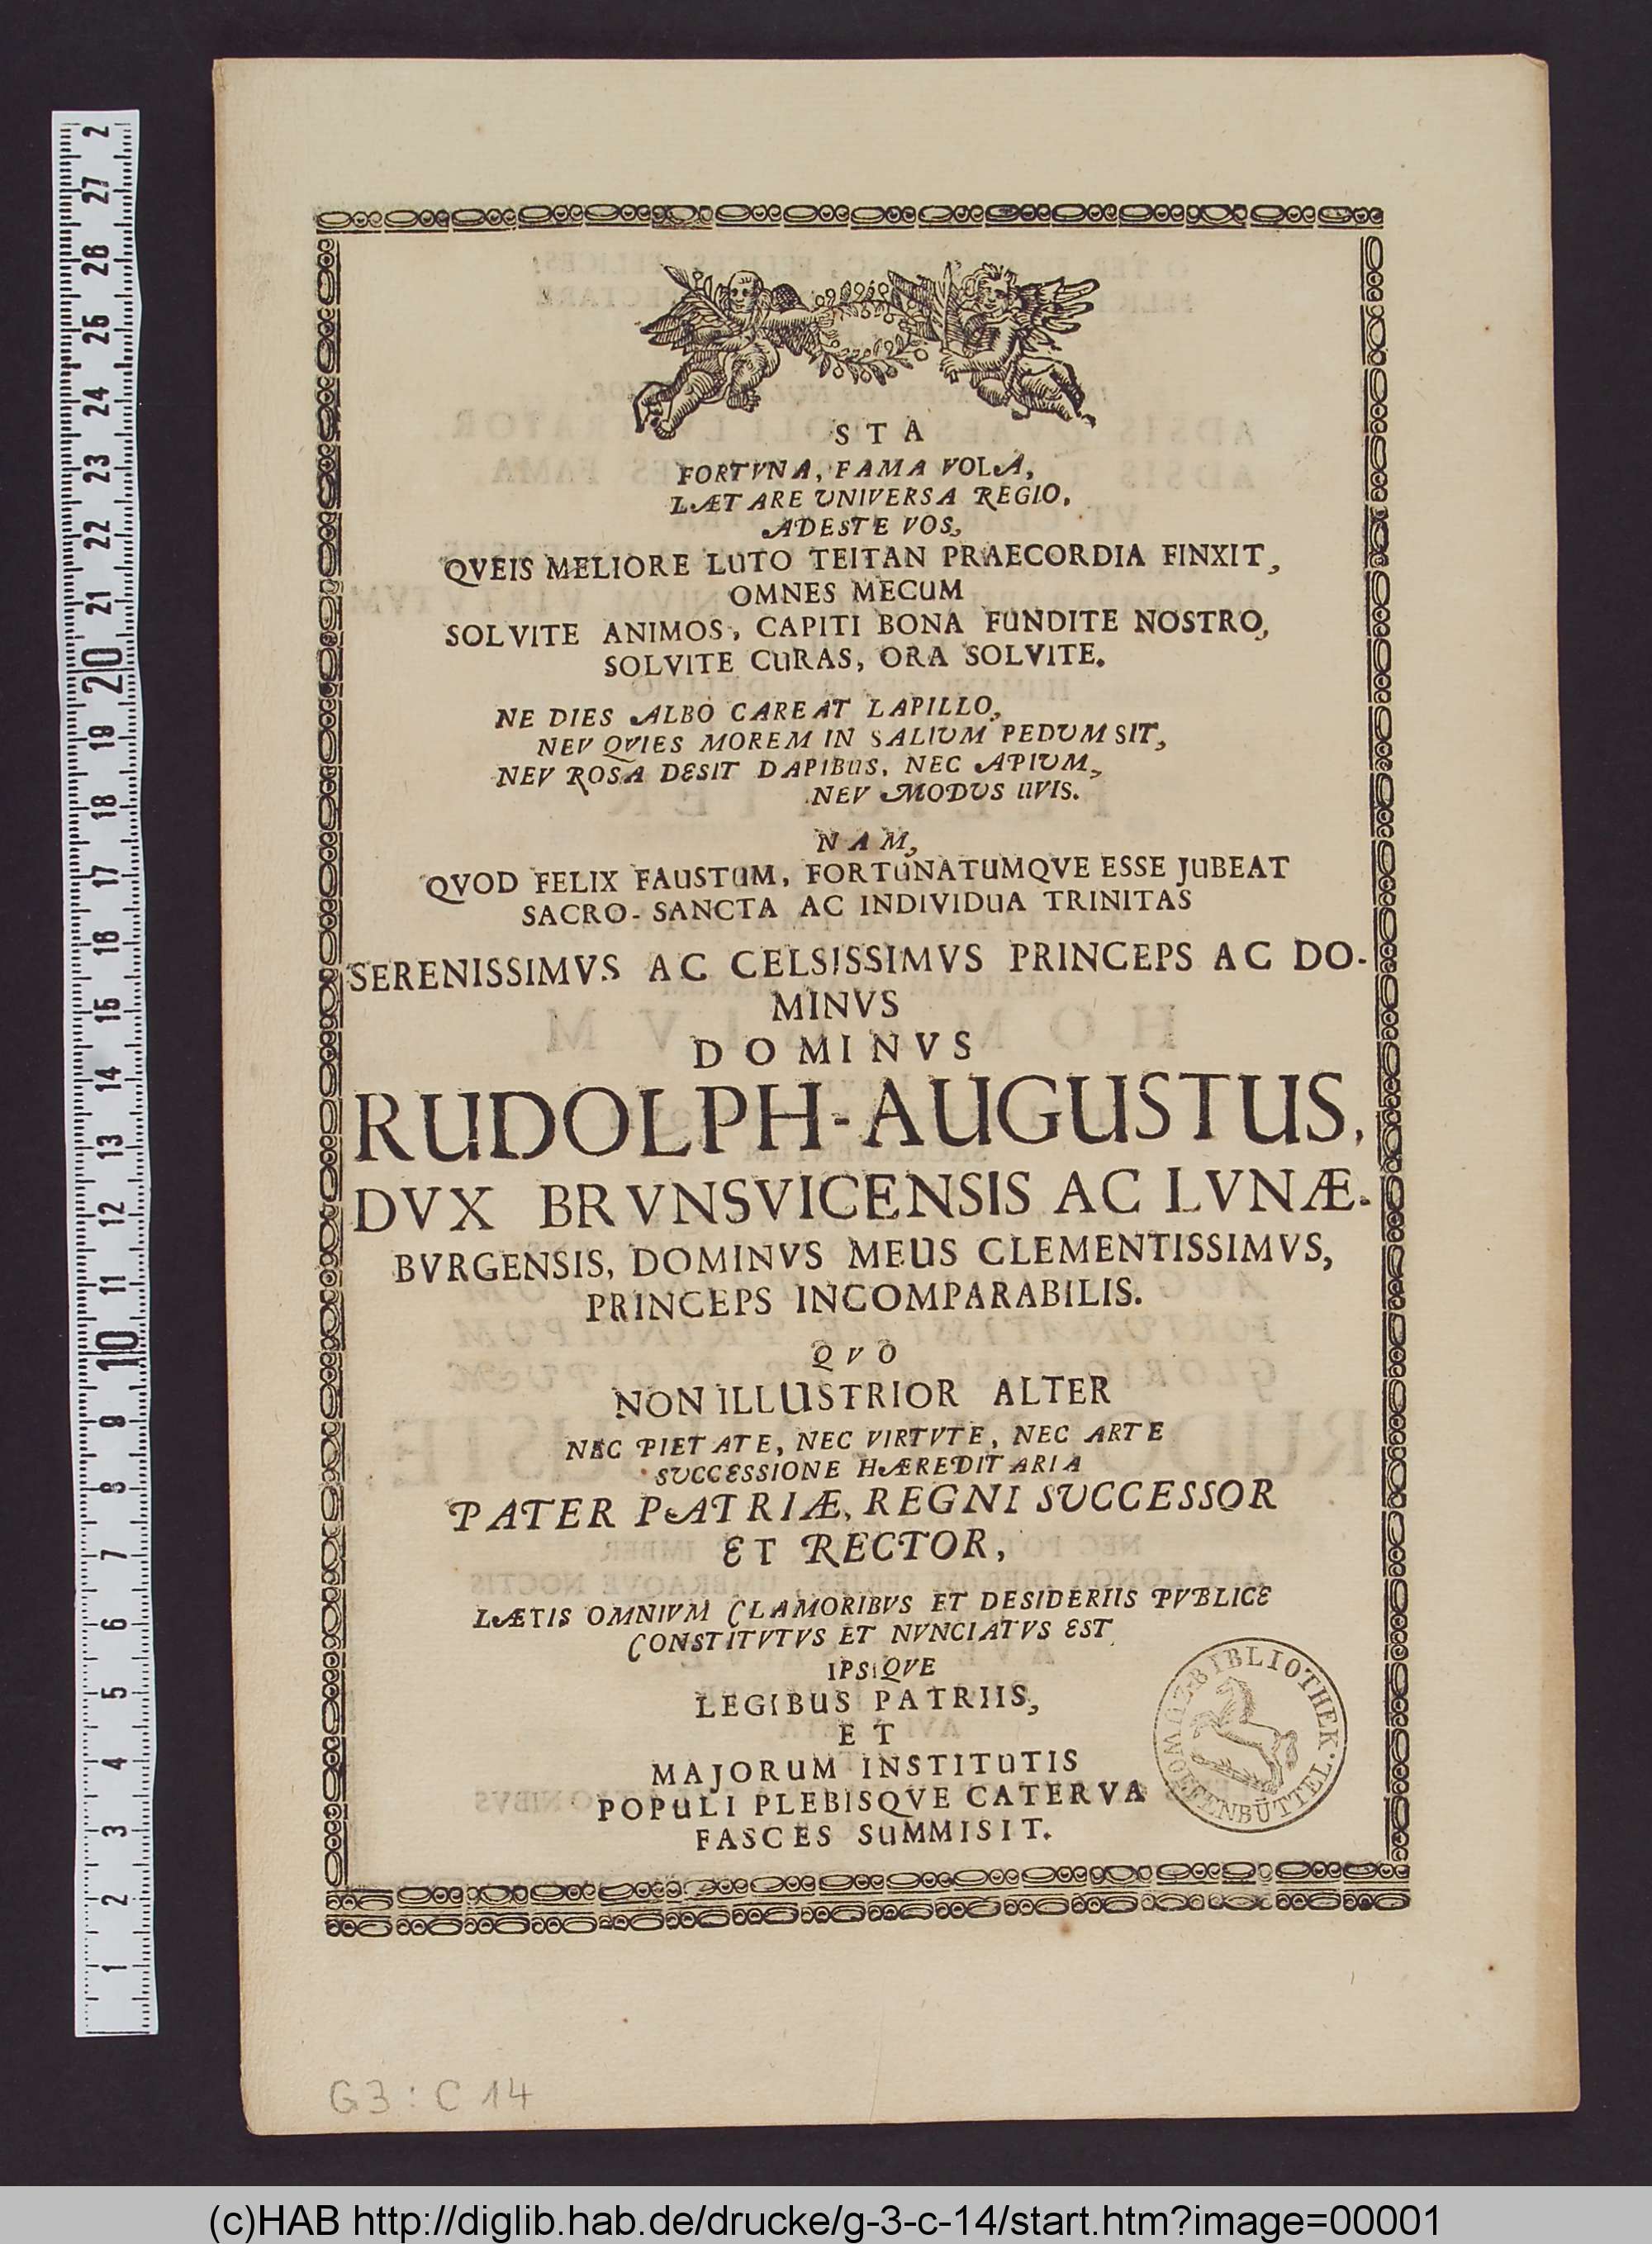 STA
FORTVNA, FAMA VOLA,
LÆTARE UNIVERSA REGIO,
ADESTE VOS,
QVEIS MELIORE LUTO TEITAN PRAECORDIA FINXIT,
OMNES MECUM
SOLVITE ANIMOS, CAPITI BONA FUNDITE NOSTRO,
SOLVITE CURAS, ORA SOLVITE.
NE DIES ALBO CAREAT LAPILLO,
NEV QVIES MOREM IN SALIUM PEDUM SIT,
NEV ROSA DESIT DAPIBUS, NEC APIUM,
NEV MODUS UVIS.
NAM,
QVOD FELIX FAUSTUM, FORTUNATUMQVE ESSE JUBEAT
SACRO-SANCTA AC INDIVIDUA TRINITAS
SERENISSIMVS AC CELSISSIMVS PRINCEPS AC DO-
MINVS
DOMINVS
RUDOLPH-AUGUSTUS,
DVX BRVNSVICENSIS AC LVNÆ-
BVRGENSIS, DOMINVS MEUS CLEMENTISSIMVS,
PRINCEPS INCOMPARABILIS.
QVO
NON ILLUSTRIOR ALTER
NEC PIETATE, NEC VIRTVTE, NEC ARTE
SUCCESSIONE HÆREDITARIA
PATER PATRIÆ, REGNI SUCCESSOR
ET RECTOR,
LÆTIS OMNIVM CLAMORIBVS ET DESIDERIIS PVBLICE
CONSTITVTVS ET NVNCIATVS EST
IPSIQVE
LEGIBUS PATRIIS,
ET
MAJORUM INSTITUTIS
POPULI PLEBISQVE CATERVA
FASCES SUMMISIT.
HZGL. BIBLIOTHEK. WOLFENBÜTTEL.
G3 : C 14
1 2 3 4 5 6 7 8 9 10 11 12 13 14 15 16 17 18 19 20 21 22 23 24 25 26 27 2
(c)HAB http://diglib.hab.de/drucke/g-3-c-14/start.htm?image=00001